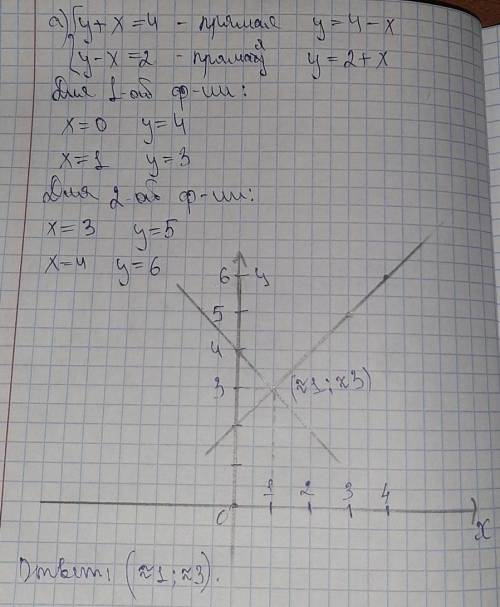 а) { y + x = 4 - прямая y = 4 - x
y - x = 2 - прямая y = 2 + x
Для 1-ой ф-ии:
x = 0 y = 4
x = 1 y = 3
Для 2-ой ф-ии:
x = 3 y = 5
x = 4 y = 6
6 y
5
4
3 (≈1; ≈3)
1 2 3 4
0 x
Ответ: (≈1; ≈3).